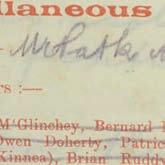 llaneous
Mr
rs :—
M'Glinchey, Bernard
Owen Doherty, Patric
Kinnea), Brian Rudd